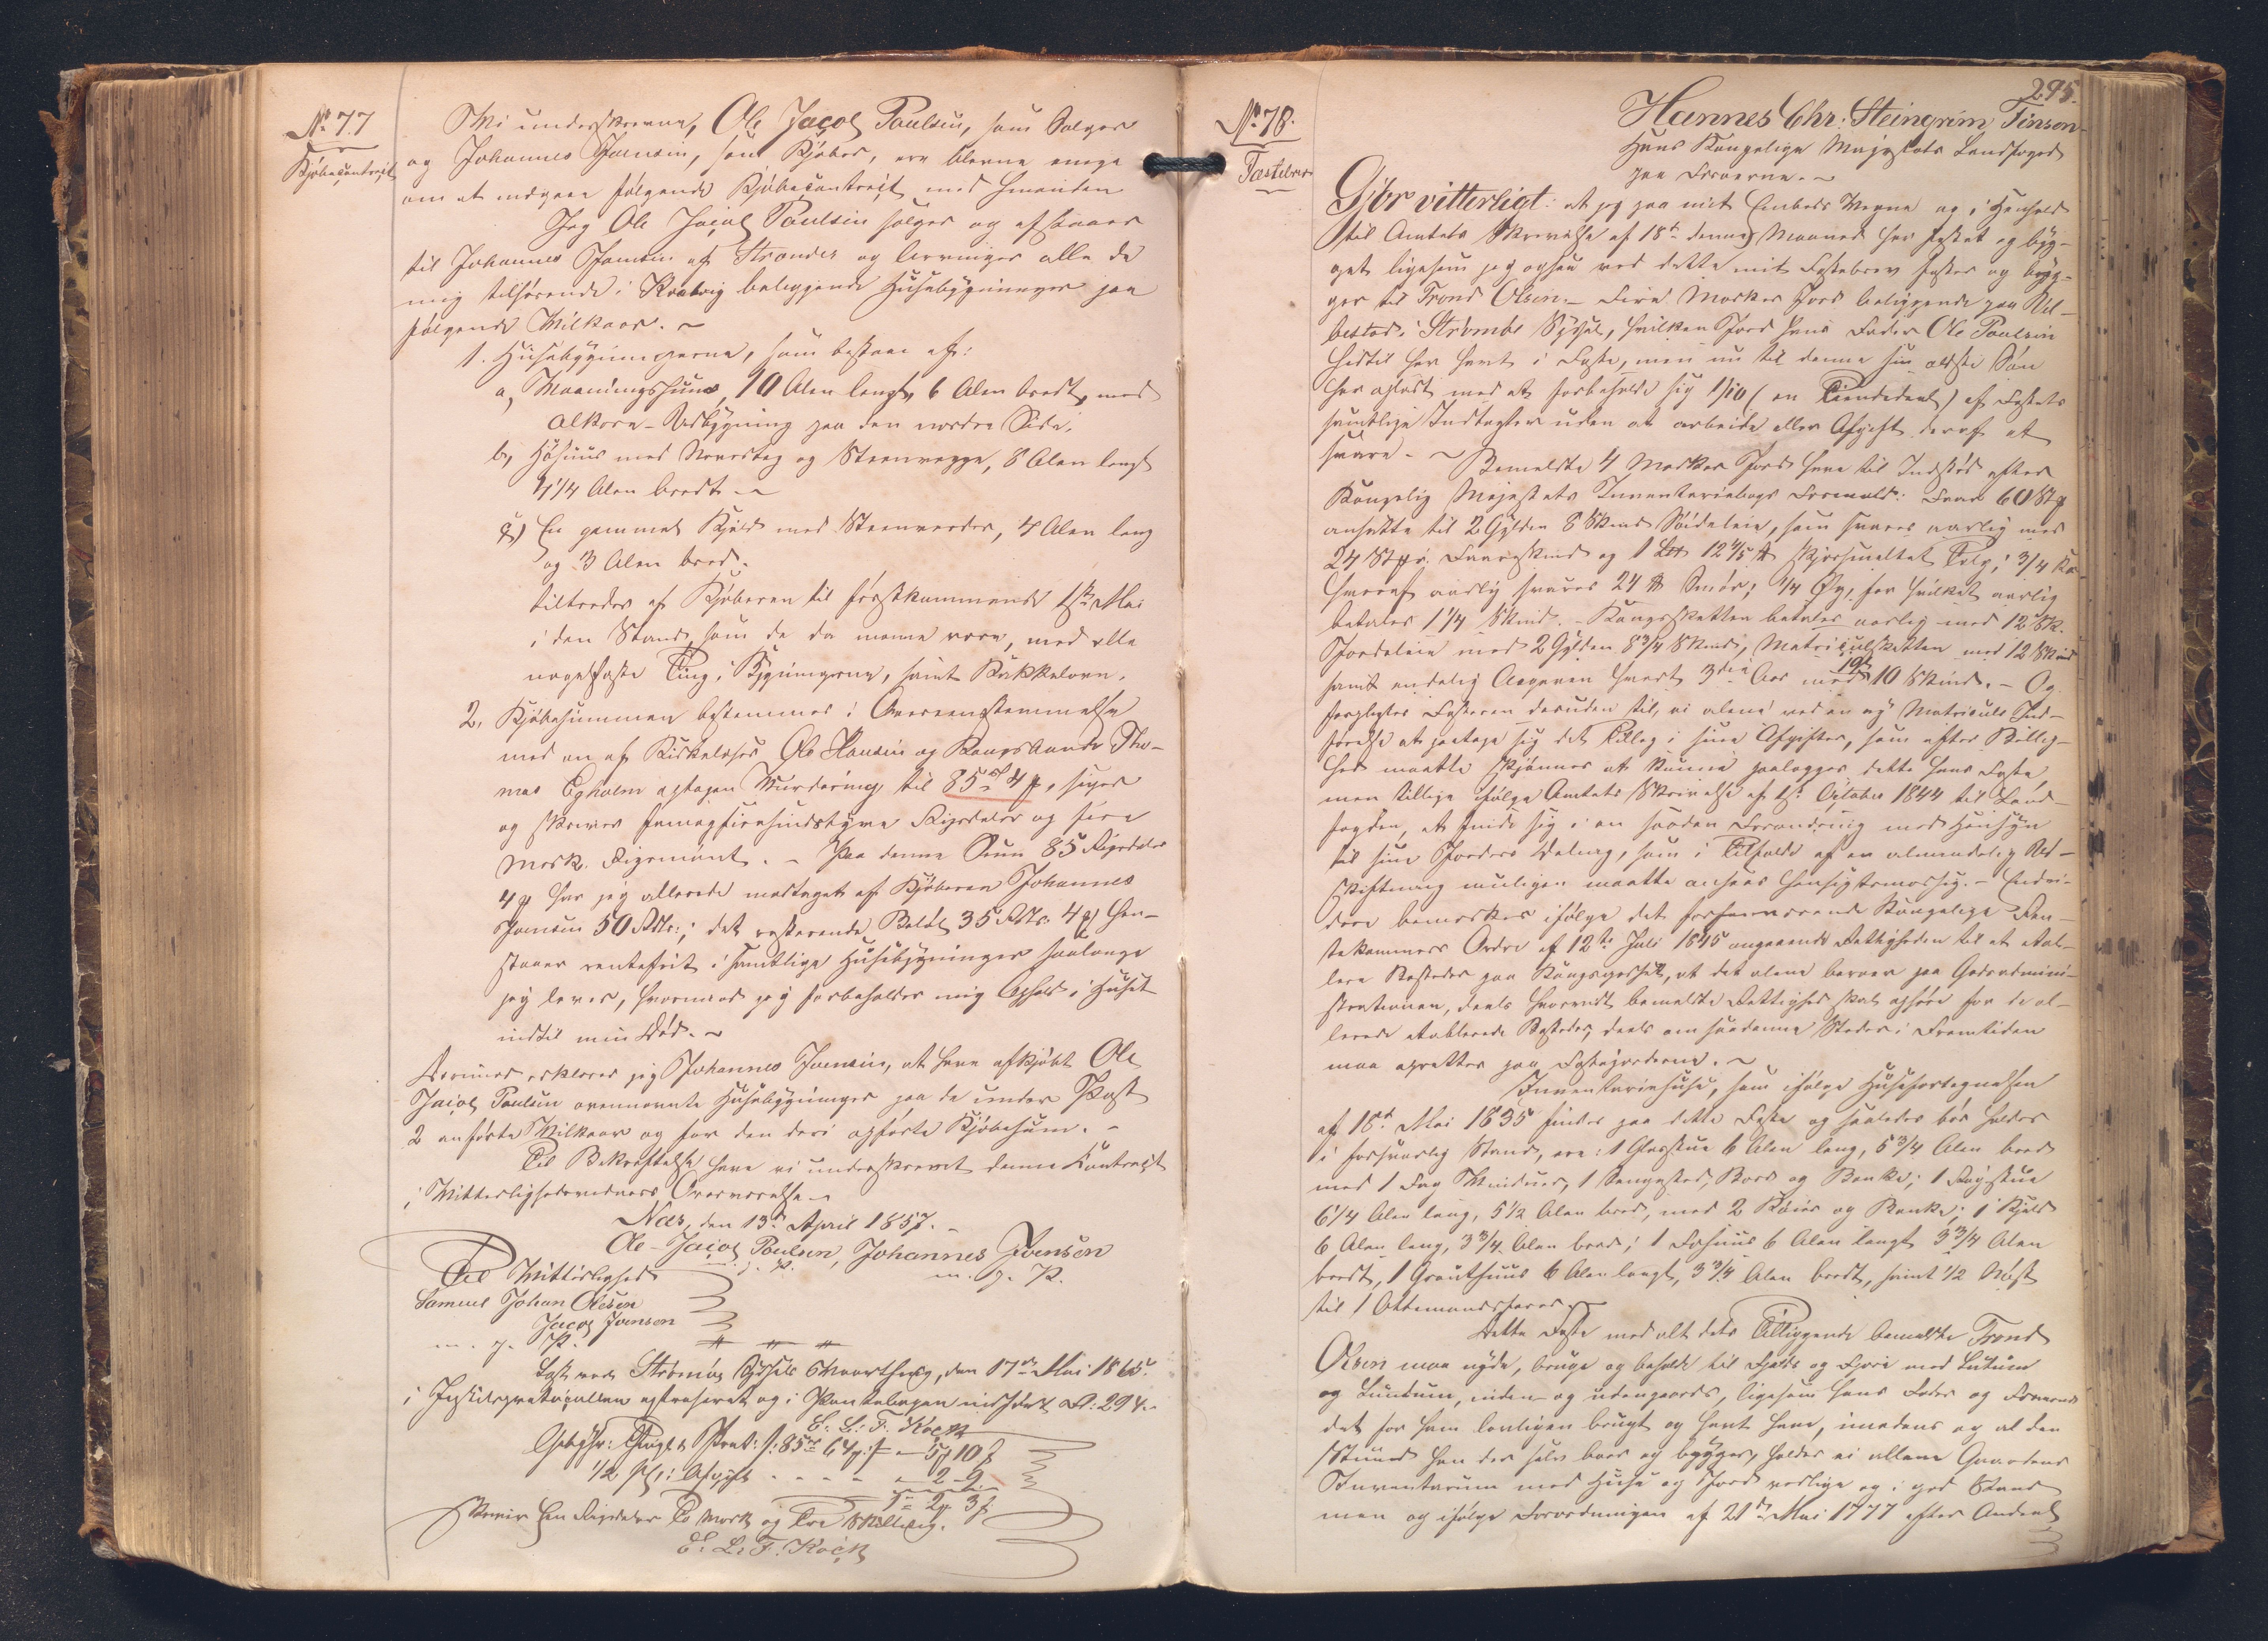 No 77
Kjøbecontract
Vi underskrevne, Ole Jacob Poulsen, som Sælger
og Johannes Joensen, som Kjøber, ere blevne enige
om at indgaae følgende Kjøbecontract med hinanden
Jeg Ole Jacob Poulsen sælger og afstaaer
til Johannes Joensen af Strænder og Arvinger alle de
mig tilhørende i Kralvig beliggende Huusbygninger paa
følgende Vilkaar. ~
1. Huusbygningerne, som bestaae af:
a, Vaaningshuus, 10 Alen langt, 6 Alen bredt, med
Alkove-Udbygning paa den nordre Side.
b, Høhuus med Steenvægge, 8 Alen langt
4 1/4 Alen bredt. ~
c) En gammel Kjeld med Steenvægge, 4 Alen lang
og 3 Alen bred.
tiltrædes af Kjøberen til førstkommende 1ste Mai
i den Stand, som de da monne være, med alle
nagelfaste Ting i Bygningerne, samt Kakkelovn.
2. Kjøbesummen bestemmes i Overeensstemmelse
med en af Ole Hansen og Kongsbonde Tho-
mas Egholm optagen Vurdering til 85 rd 4 ꝥ, siger
og skriver femogfirsindstyve Rigsdaler og fire
Mark Rigsmønt. - Paa denne Sum 85 Rigsdaler
4 ꝥ har jeg allerede modtaget af Kjøberen Johannes
Joensen 50 Rdlr.; det resterende Beløb 35 Rdlr. 4 ꝥ hen-
staaer rentefrit i samtlige Huusbygninger saalænge
jeg lever, hvorimod jeg forbeholder mig Ophold i Huset
indtil min Død. ~
Derimod erklærer jeg Johannes Joensen, at have afkjøbt Ole
Jacob Poulsen ovennævnte Huusbygninger paa de under Post
2 anførte Vilkaar og for den deri opførte Kjøbesum. -
Til Bekræftelse have vi underskrevet denne Contract
i Vitterlighedsvidners Overværelse. ~
Næs, den 13de April 1857. -
Ole Jacob Poulsen, Johannes Joensen
m. f. P. m. f. P.
Til Vitterlighed
Samuel Johan Olesen
Jacob Joensen
m. f. P.
Læst ved Strømøe Syssels Vaarthing, den 17de Mai 1865.
i Justitsprotocollen extraheret og i Pantebogen indført Fl: 294.
E: L: F: Koch
1/2 pCt: Afgift - - - - 2 - 9
1 - 2 ꝥ 3 ß
Skriver Een Rigsdaler To Mark og Tre Skilling.
E: L: F. Koch
295.
No 78.
Fæstebrev
Hannes Chr: Steingrim Finsen
Hans Kongelige Majestæts Landfoged
paa Færøerne. ~
Gjør vitterligt: at jeg paa mit Embeds Vegne og i Henhold
til Amtets Skrivelse af 18de denne Maaned har fæstet og byg-
get ligesom jeg ogsaa ved dette mit Fæstebrev fæster og byg-
ger til Trond Olsen. - Fire Marker Jord beliggende paa Vel-
bestad i Strømøe Syssel, hvilken Jord hans Fader Ole Poulsen
hidtil har havt i Fæste, men nu til denne sin ældste Søn
har opladt med at forbeholde sig 1/10 (en Tiendedeel) af Fæstets
samtlige Indtægter uden at arbeide eller Afgift deraf at
svare. - ~ Bemeldte 4 Marker Jord have til Indstød efter
Kongelig Majestæts Inventariebogs Formeld: Faar 60 Stk
ansatte til 2 Gylden 8 Skind Søideleie, som svares aarlig med
24 Stkr. Faareskind og 1 Lod 12 4/5 ℔ skjørsmeltet Talg; 3/4 Ko
hvoraf aarlig svares 24 ℔ Smør; 1/4 Øg, for hvilket aarlig
betales 1 1/4 Skind. - Kongsskatten betales aarlig med 12 Sk.
Jordeleie med 2 Gylden 8 3/4 Skind, Matriculskatten med 12 Skind
samt endelig Angaven hvert 3die Aar med 10 Skind. - Og
forpligtes Fæsteren desuden til, ei alene ved en ny Matriculs Ind-
førelse at paatage sig det Tillæg i sine Afgifter, som efter Billig-
hed maatte skjønnes at kunne paalægges dette hans Fæste,
men tillige ifølge Amtets Skrivelse af 1ste October 1844 til Land-
fogden, at finde sig i en saadan Forandring med Hensyn
til sine Jorders Deling, som i Tilfælde af en almindelig Ud-
skiftning muligen maatte ansees hensigtsmæssig. - Endvi-
dere bemærkes ifølge det forhenværende Kongelige Ren-
tekammers Ordre af 12te Juli 1845 angaaende Rettigheden til at etab-
lere Bosteder paa Kongsgodset, at det alene beroer paa Godsadmini-
strationen, deels hvorvidt bemeldte Rettighed skal ophøre for de al-
lerede etablerede Bosteder, deels om saadanne Steder i Fremtiden
maa oprettes paa Fæstejorderne. ~
Inventariehuse, som ifølge Huusfortegnelsen
af 18de Mai 1835 findes paa dette Fæste og saaledes bør holdes
i forsvarlig Stand, ere: 1 Glasstue 6 Alen lang, 5 3/4 Alen bred
med 1 Fag Vinduer, 1 Sengested, Bord og Bænke; 1 Røgstue
6 1/4 Alen lang, 5 1/2 Alen bred, med 2 Køier og Bænke; 1 Kjeld
6 Alen lang, 3 3/4 Alen bred; 1 Fæhuus 6 Alen langt 3 3/4 Alen
bredt, 1 Grouthuus 6 Alen langt, 3 3/4 Alen bredt, samt 1/2 Nøst
til 1 Ottemandsfarer. ~
Dette Fæste med alt dets Tilliggende bemeldte Trond
Olsen maa nyde, bruge og beholde til Fjelds og Fjære med Lutum
og Lundum, inden- og udengaards, ligesom hans Fader og Formænd
det for ham lovligen brugt og havt have, imedens og al den
Stund han der selv boer og bygger, holder ei allene Gaardens
Inventarium med Huse og Jord vedlige og i god Stand
men og ifølge Forordningen af 21de Mai 1777 efter Andeel